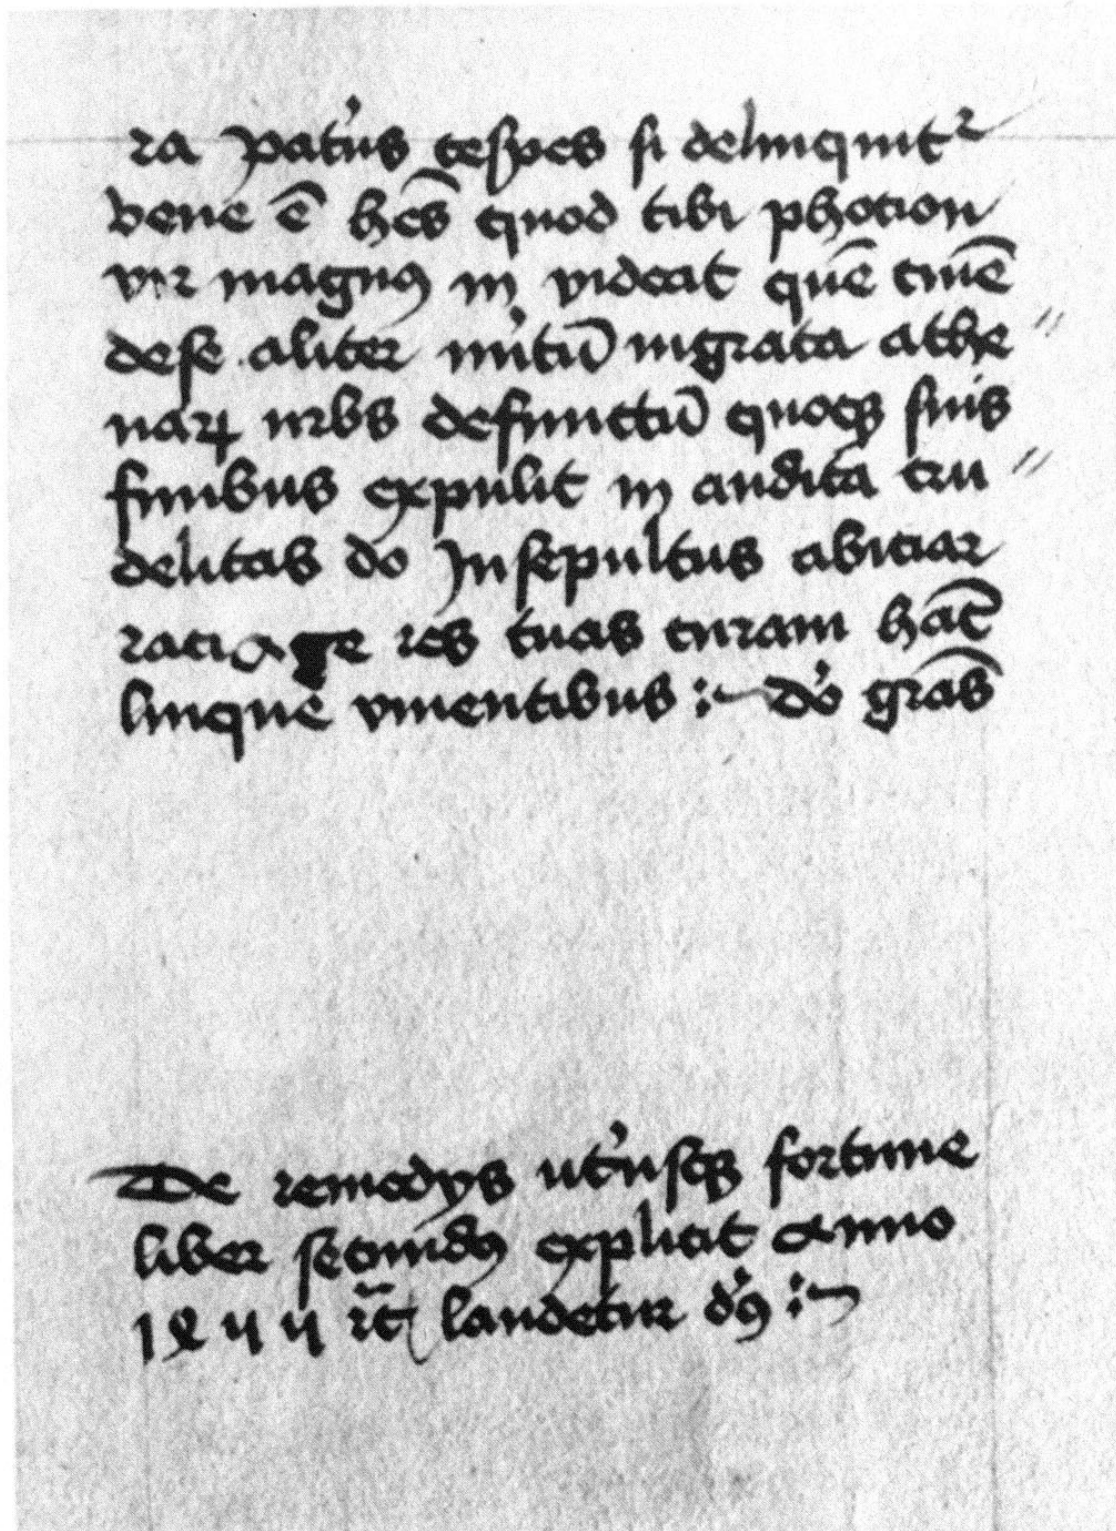 ra pat'us cespes si delinquit᷑
bene ē hēs quod tibi phocion
vir magnꝰ īn videat quē cinē
de se aliter m'itū ingrata athe〃
naꝝ urbs defunctū quoqꝫ suis
finibus expulit in audita cru〃
delitas do Insepultus abiciar
raci age res tuas curam hāc
linque viuentibus :~ dō grās
De remedys ut'usqꝫ fortune
liber secundꝰ explicit Anno
1477 rc̄ laudetur d'ꝰ :~